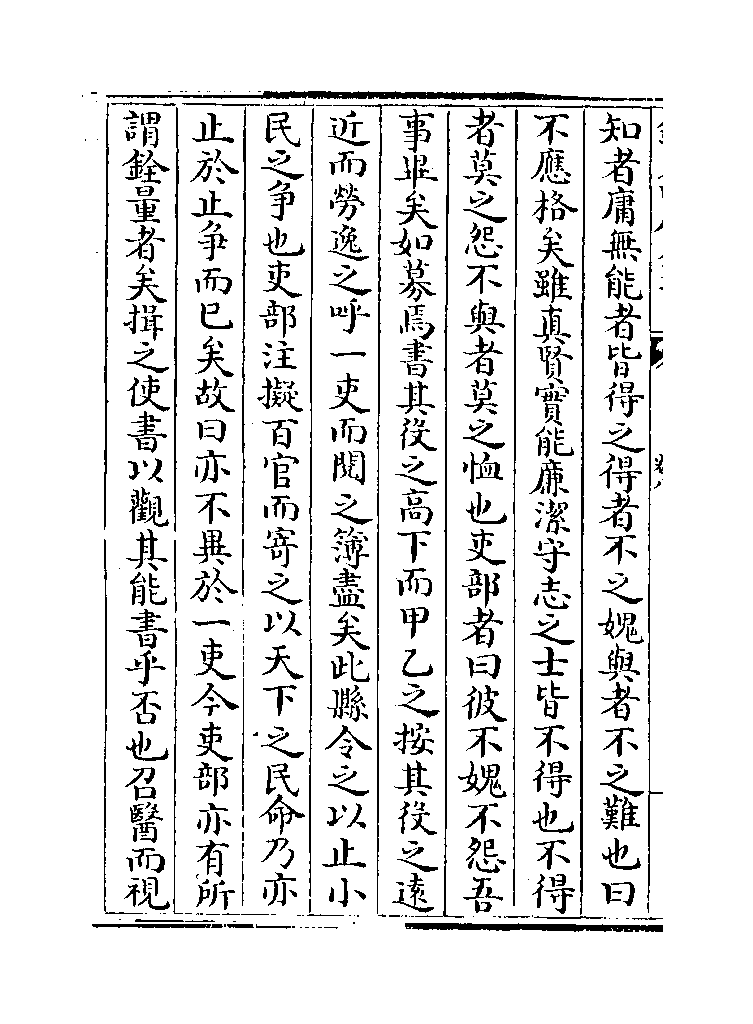 知者庸無能者皆得之得者不之媿與者不之難也曰
不應格矣雖真賢實能廉潔守志之士皆不得也不得
者莫之怨不與者莫之恤也吏部者曰彼不媿不怨吾
事畢矣如募焉書其役之高下而甲乙之按其役之遠
近而勞逸之呼一吏而閱之簿盡矣此縣令之以止小
民之争也吏部注擬百官而寄之以天下之民命乃亦
止於止争而已矣故曰亦不異於一吏今吏部亦有所
謂銓量者矣揖之使書以觀其能書乎否也召醫而視